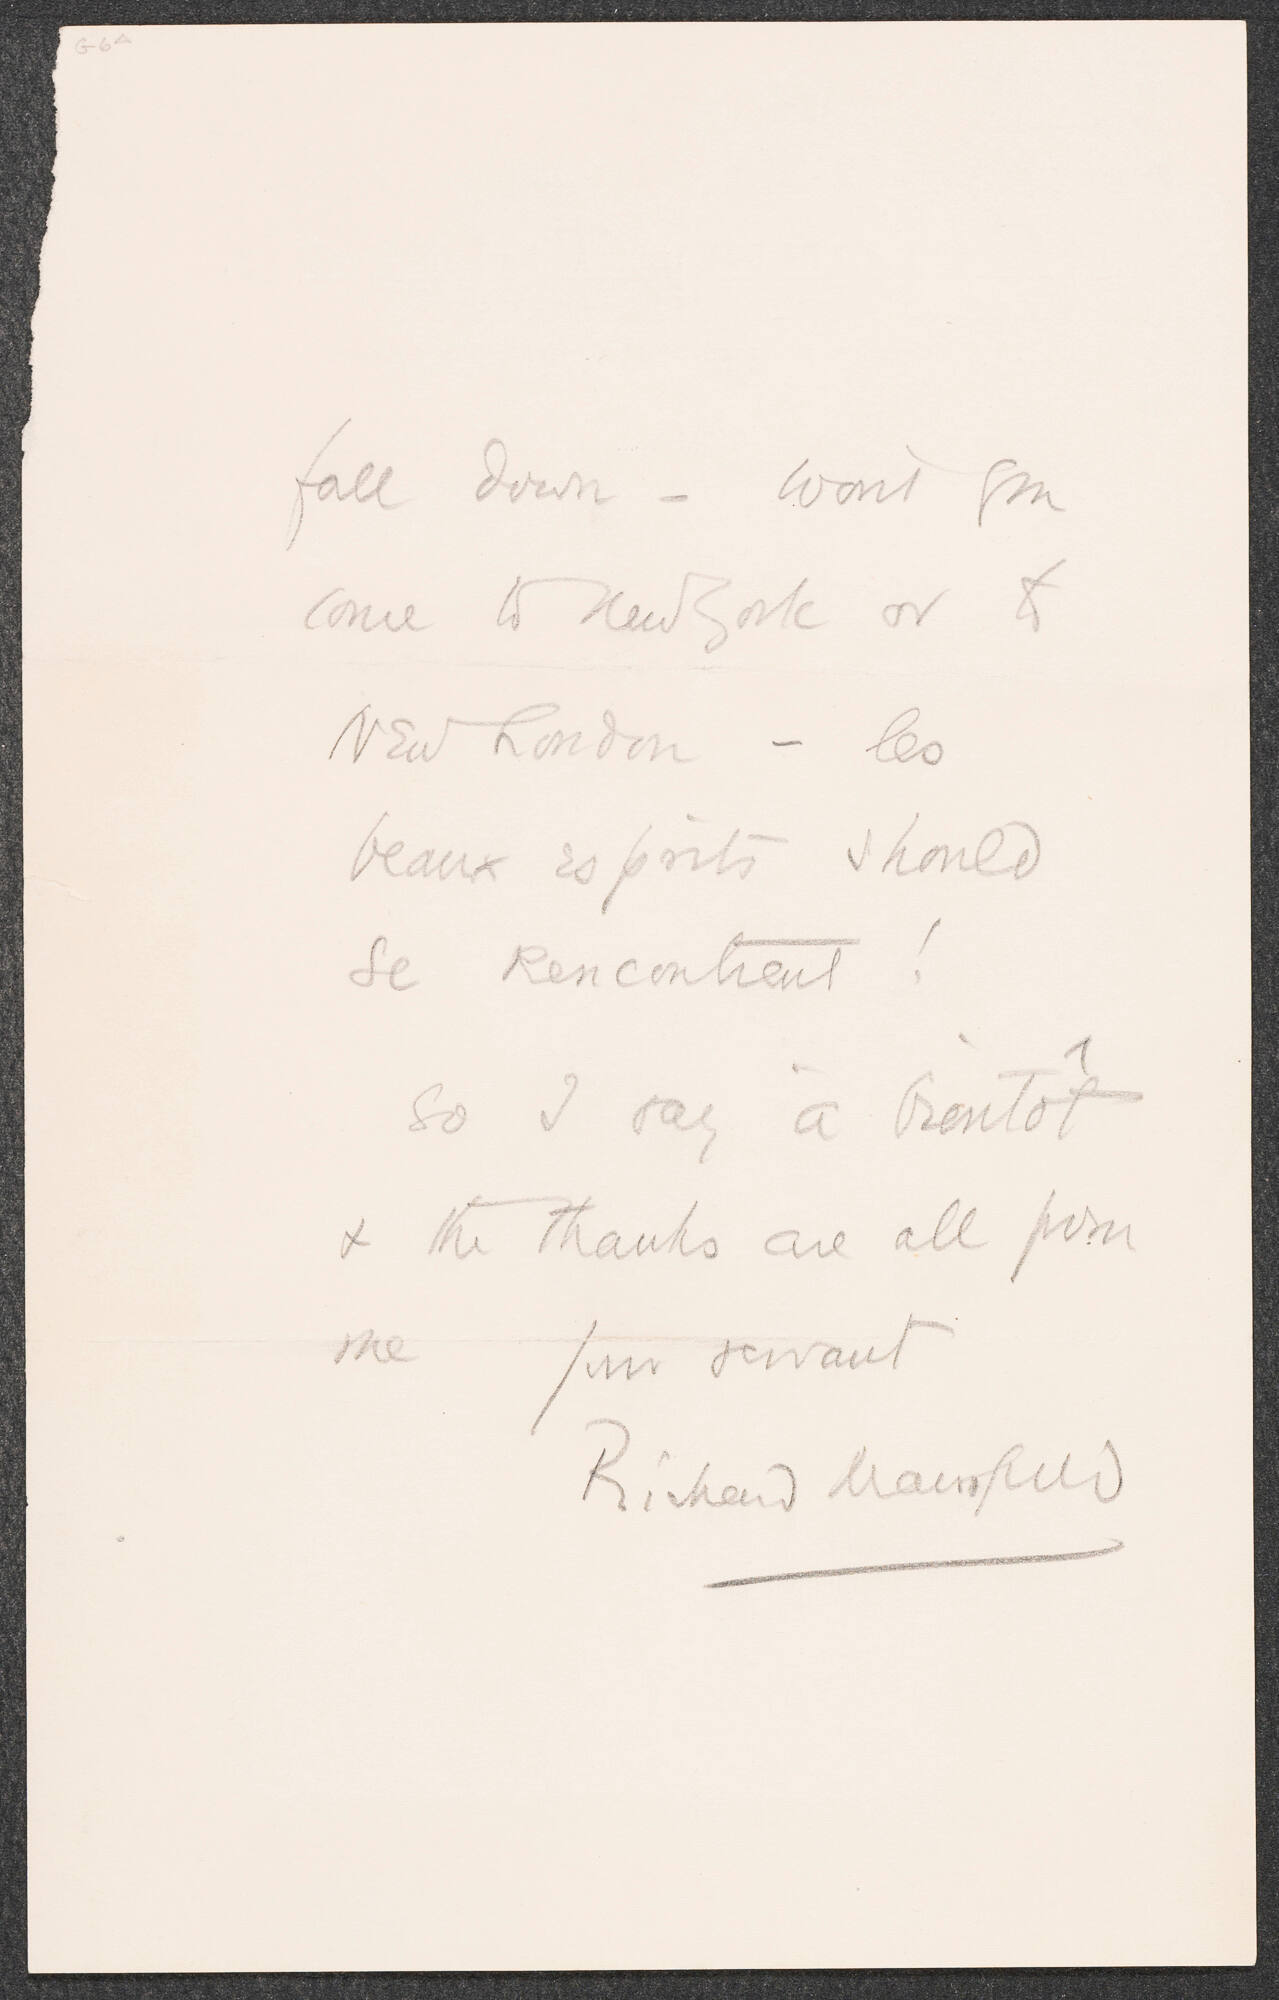 G-6A
fall down - won't you
come to New York or to
New London - les
beaux esprits should
se rencontrent!
So I say à bientôt
& the thanks are all from
me your servant
Richard Mansfield